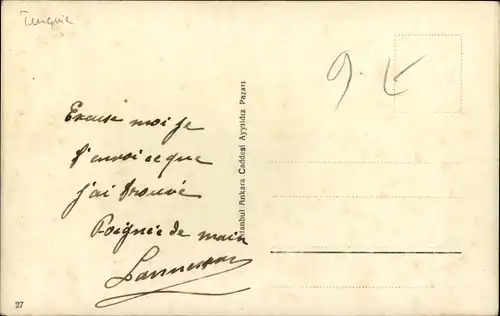 Turquie
9.
Excuse moi je
t'envoi ce que
j'ai trouvé
Poignée de main
Istanbul Ankara Caddesi Ayyıldız Pazarı
27